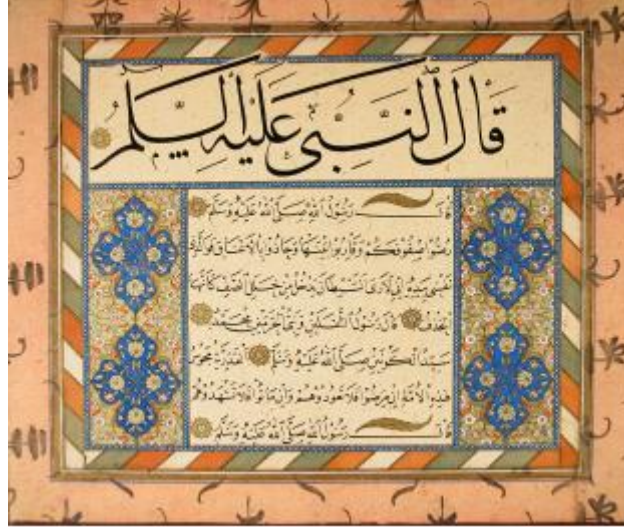 قَالَ النَّبِيُّ عَلَيْهِ السَّلَمُ
قال رسول الله صلى الله عليه وسلم
رصوا صفوفكم وقاربوا بينها وحاذوا بالاعناق فوالذي
نفسي بيده اني لارى الشيطان يدخل من خلل الصف كانها
الحذف قال رسول الثقلين ونبي الحرمين محمد
سيد الكونين صلى الله عليه وسلم القدرية مجوس
هذه الامة ان مرضوا فلا تعودوهم وان ماتوا فلا تشهدوهم
قال رسول الله صلى الله عليه وسلم